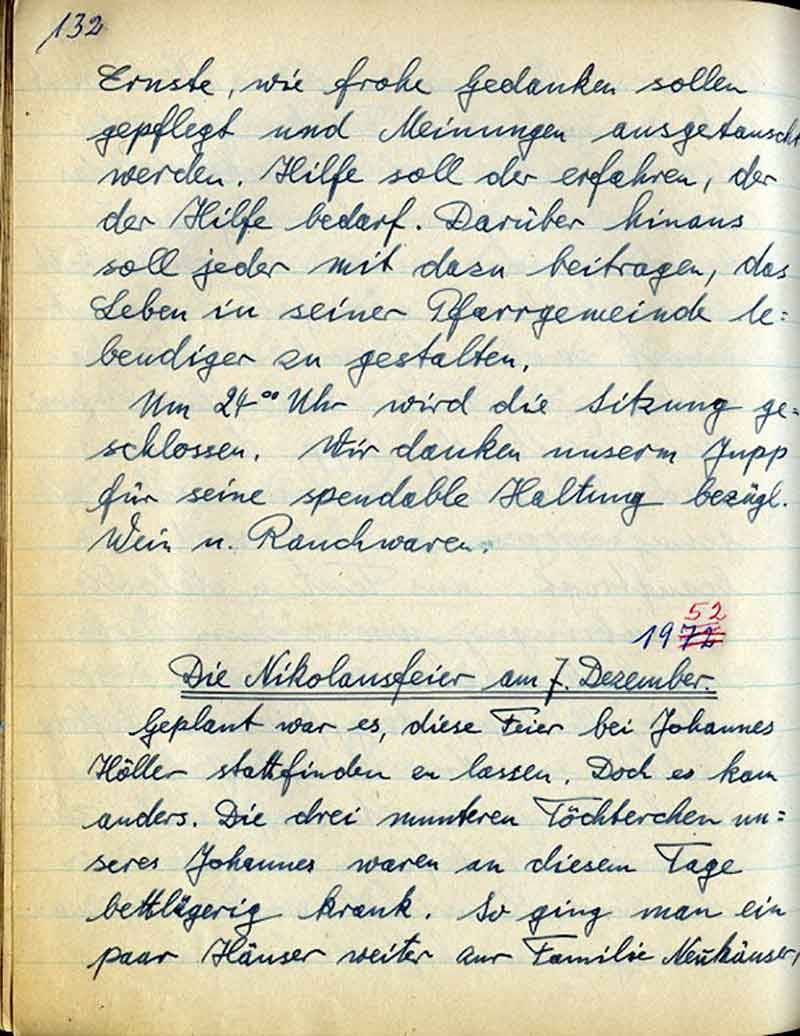 132
Ernste, wie frohe Gedanken sollen
gepflegt und Meinungen ausgetauscht
werden. Hilfe soll der erfahren, der
der Hilfe bedarf. Darüber hinaus
soll jeder mit dazu beitragen, das
Leben in seiner Pfarrgemeinde le=
bendiger zu gestalten.
Um 24⁰⁰ Uhr wird die Sitzung ge=
schlossen. Wir danken unserm Jupp
für seine spendable Haltung bezügl.
Wein u. Rauchwaren.
52
1972
Die Nikolausfeier am 7. Dezember.
Geplant war es, diese Feier bei Johannes
Höller stattfinden zu lassen. Doch es kam
anders. Die drei munteren Töchterchen un=
seres Johannes waren an diesem Tage
bettlägerig krank. So ging man ein
paar Häuser weiter zur Familie Neuhäuser,